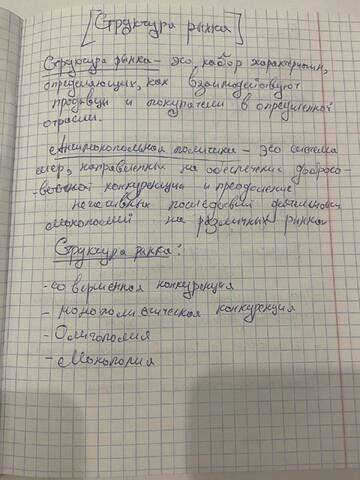 [Структура рынка]
Структура рынка - это, набор характеристик,
определяющих, как взаимодействуют
продавцы и покупатели в определенной
отрасли.
Антимонопольная политика - это система
мер, направленных на обеспечение добросо-
вестной конкуренции и преодоление
негативных последствий деятельности
монополий на различных рынках
Структура рынка:
- совершенная конкуренция
- монополистическая конкуренция
- Олигополия
- Монополия